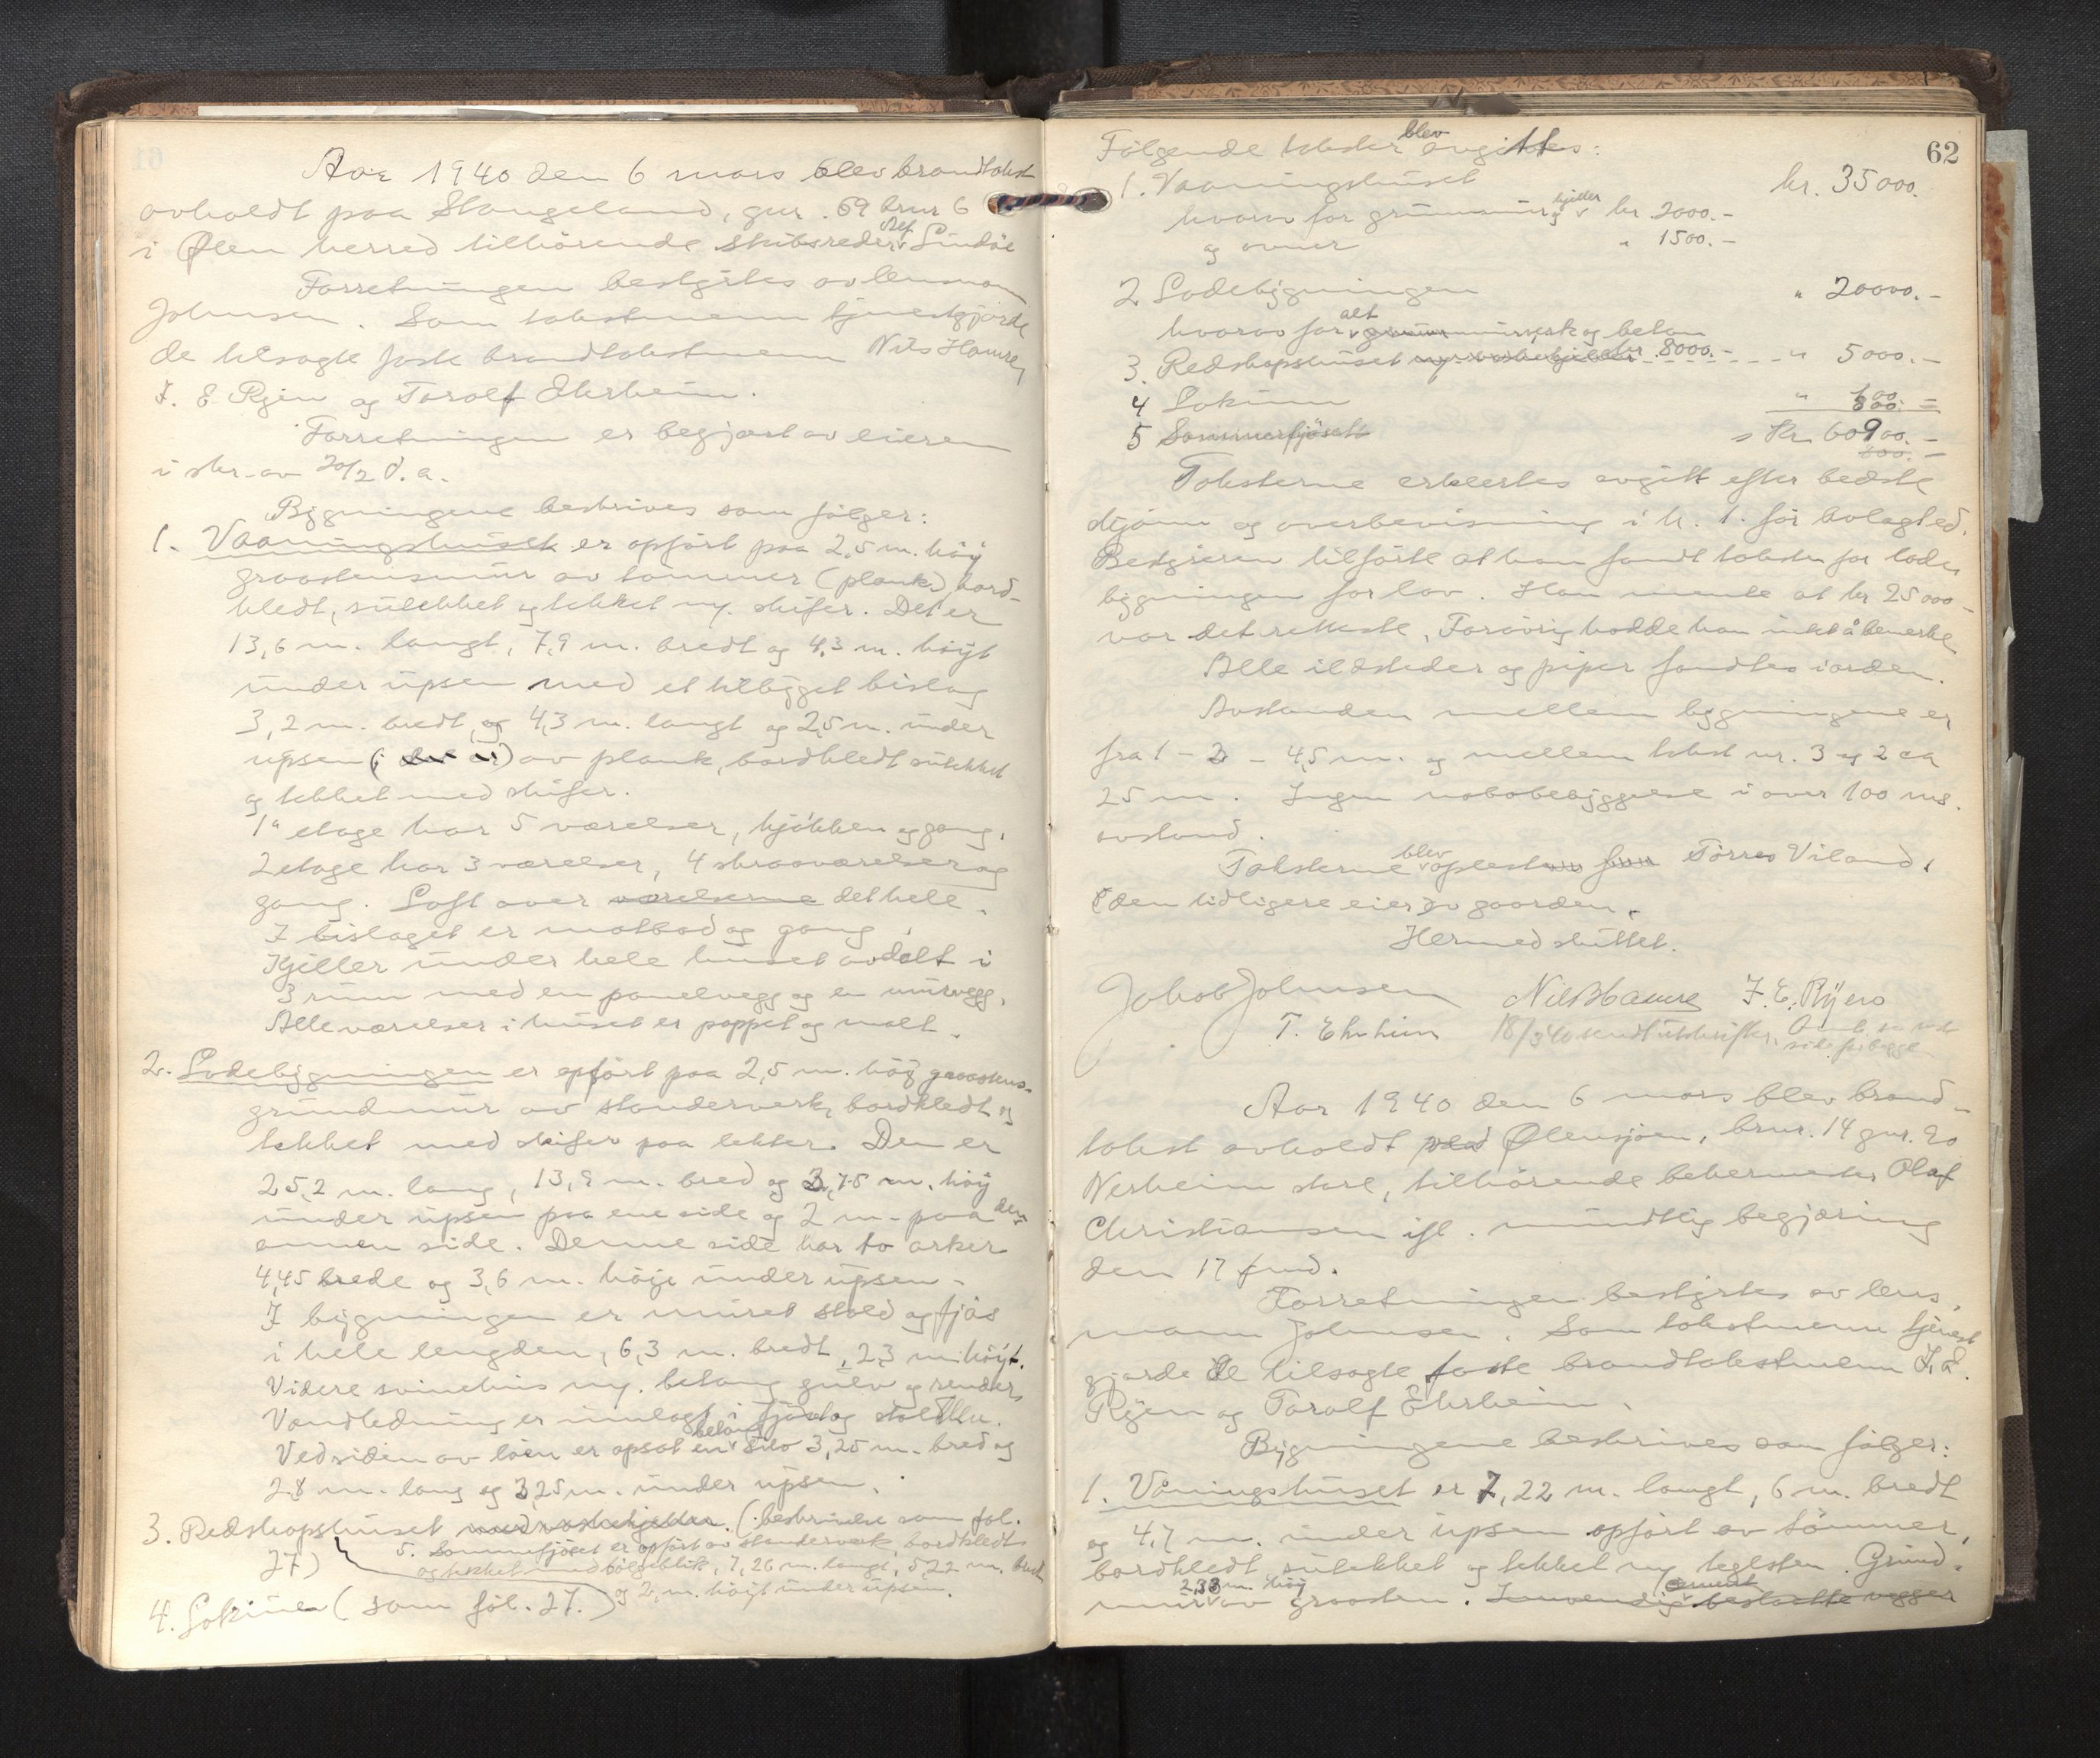 Aar 1940 den 6 mars blev brandtakst
avholdt paa Stangeland, gnr. 69 brnr 6
i Ølen herred tilhörende skibsreder Lindöe
Forretningen bestyrtes av lensmann
Johnsen. Som takstmenn tjenestgjorde
de tilsagte faste brandtakstmenn Nils Hamre,
J. E Ryen og Torolf Ehrheim.
Forretningen er begjært av eieren
i skr. av 20/2 d. a.
Bygningene beskrives som fölger:
1. Vaaningshuset er opfört paa 2,5 m. höy
graastensmur av tömmer (plank), bord-
kledt, sutekket og tekket m/ skifer. Det er
13,6 m. langt, 7,9 m. bredt og 4,3 m. höyt
under upsen med et tilbygget bislag
3,2 m. bredt, og 4,3 m. langt og 2,5 m. under
upsen av plank, bordkledt sutekket
og tekket med skifer.
1ste etage har 5 værelser, kjökken og gang.
2 etage har 3 værelser, 4 skraaværelser og
gang. Loft over værelserne det hele.
I bislaget er matbod og gang.
Kjeller under hele huset avdelt i
3 rum med en panelvegg og en murvegg.
Alle værelser i huset er pappet og malt.
2. Lodebygningen er opfört paa 2,5 m. höy graastens-
grundmur av standerverk, bordkledt og
tekket med skifer paa lekter. Den er
25,2 m. lang, 13,9 m. bred og 3,75 m. höy
under upsen paa ene side og 2 m. paa den
annen side. Denne side har to arker
4,45 brede og 3,6 m. höye under upsen.
I bygningen er muret stald og fjös
i hele lengden, 6,3 m. bredt, 2,3 m. höyt.
Videre svinehus m/ betong gulv og render.
Vandledning er innlagt i fjös og stald
Ved siden av löen er opsat en betong silo 3,25 m. bred og
2,8 m. lang og 3,25 m. under upsen.
3. Redskapshuset med vaskekjeller. (beskrivelse som fol.
27)
5. Sommerfjöset er opfört av standerverk, bordkledt
og tekket med bölgeblik, 7,26 m. langt, 5,22 m. bredt
og 2, m. höyt under upsen.
4. Lokum (som fol. 27.)
62
Fölgende takster blev avgitt:
1. Vaaningshuset kr. 35000.
hvorav for grunnmur og kjeller kr. 2000.-
og ovner " 1500.-
2 Lodebygningen " 20000.-
hvorav for alt murverk og betong kr. 8000.-
3. Redskapshuset " 5000.-
4 Lokum " 100.-
5 Sommerfjöset 800.-
Kr. 60900.-
Taksterne erklertes avgitt efter bedste
skjönn og overbevisning i h. t. för avlagt ed.
Bestyreren tilförte at han fandt taksten for lode-
bygningen for lav. Han mente at kr 25000.-
var det retteste. Forövrig hadde han intet å bemerke.
Alle ildsteder og piper fandtes i orden.
Avstanden mellem bygningene er
fra 1 - 2 - 45 m. og mellem takst nr. 3 og 2 ca
25 m. Ingen nabobebyggelse i over 100 ms.
avstand.
Taksterne blev oplest for Törres Viland,
den tidligere eier av gaarden.
Hermed sluttet.
Jakob Johnsen Nils Hamre J. E. Ryen
T. Ehrheim 18/3 40 sendt utskrifter.
Aar 1940 den 6 mars blev brand-
takst avholdt ved Ölensjöen, brnr. 14 gnr. 90
Nerheim store, tilhörende bakermester Olaf
Christiansen ifl. mundtlig begjæring
den 17 f. md.
Forretningen bestyrtes av lens-
mann Johnsen. Som takstmenn tjenest-
gjorde de tilsagte faste brandtakstmenn J. E.
Ryen og Torolf Ehrheim.
Bygningene beskrives som fölger:
1. Våningshuset er 7,22 m. langt, 6 m. bredt
og 4,7 m. under upsen opfört av tömmer,
bordkledt, sutekket og tekket m/ teglsten. Grund-
mur 2,33 m. höy av graasten. Innvendig cement beslaatte vegger